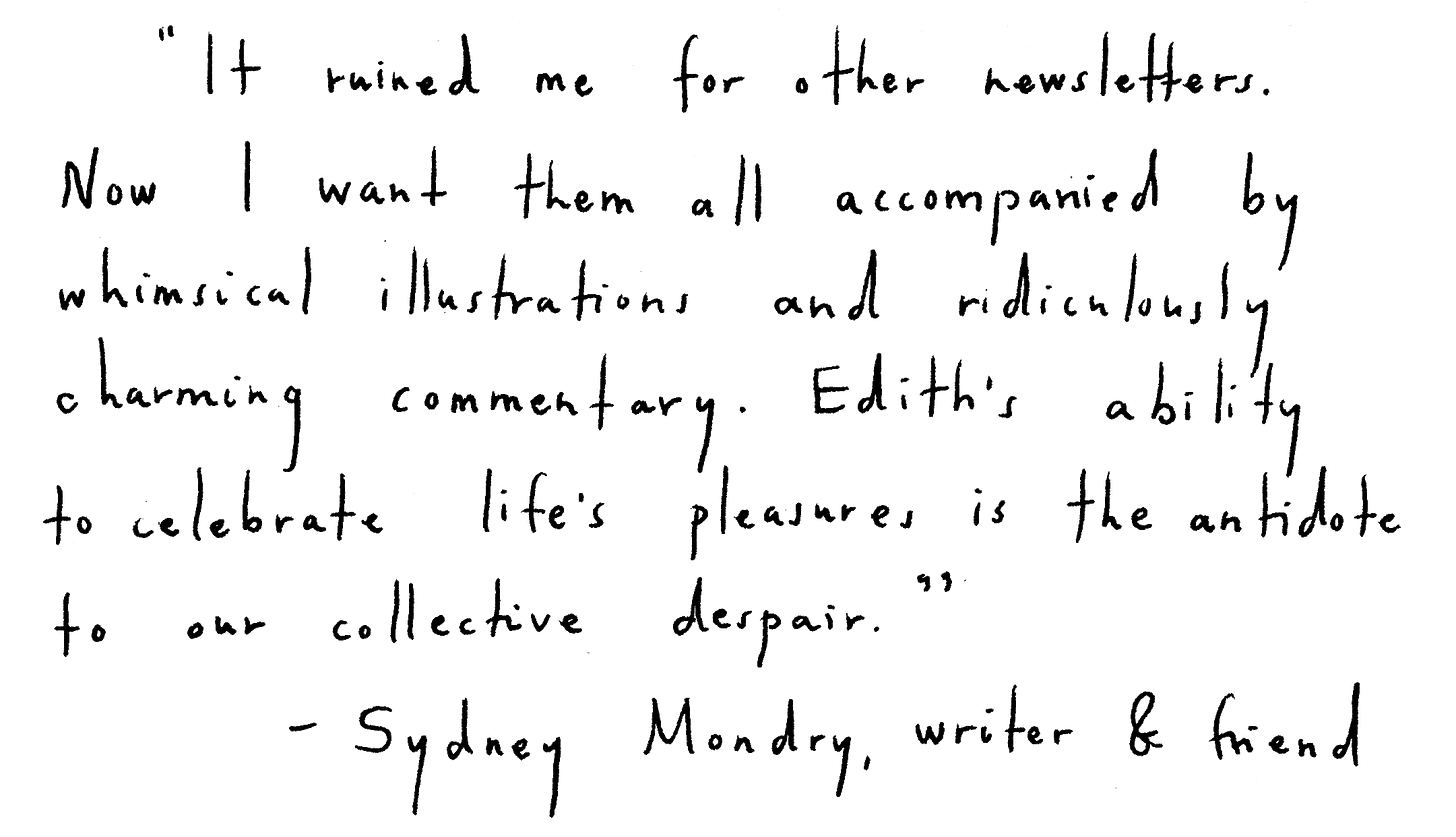 "It ruined me for other newsletters.
Now I want them all accompanied by
whimsical illustrations and ridiculously
charming commentary. Edith's ability
to celebrate life's pleasures is the antidote
to our collective despair."
- Sydney Mondry, writer & friend